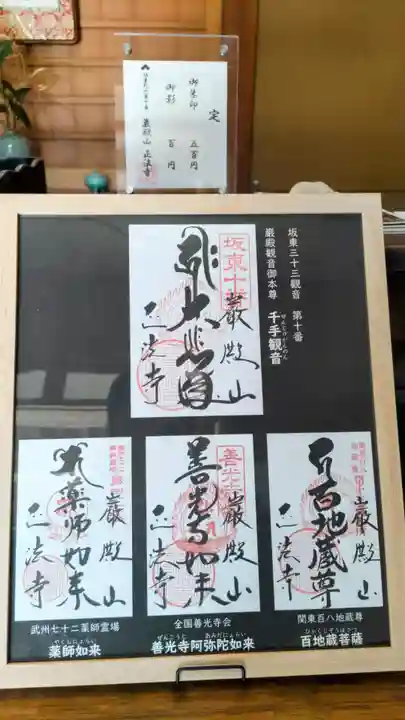 定
御朱印 五百円
御影 百円
巌殿山 正法寺
坂東三十三観音 第十番
巌殿観音御本尊 千手観音
せんじゅかんのん
坂東十番
大悲殿
巌殿山
正法寺
薬師如来
巌殿山
正法寺
善光寺如来
巌殿山
正法寺
百地蔵尊
巌殿山
正法寺
武州七十二薬師霊場
やくしにょらい
薬師如来
全国善光寺会
ぜんこうじ あみだにょらい
善光寺阿弥陀如来
関東百八地蔵尊
ひゃくじぞうぼさつ
百地蔵菩薩